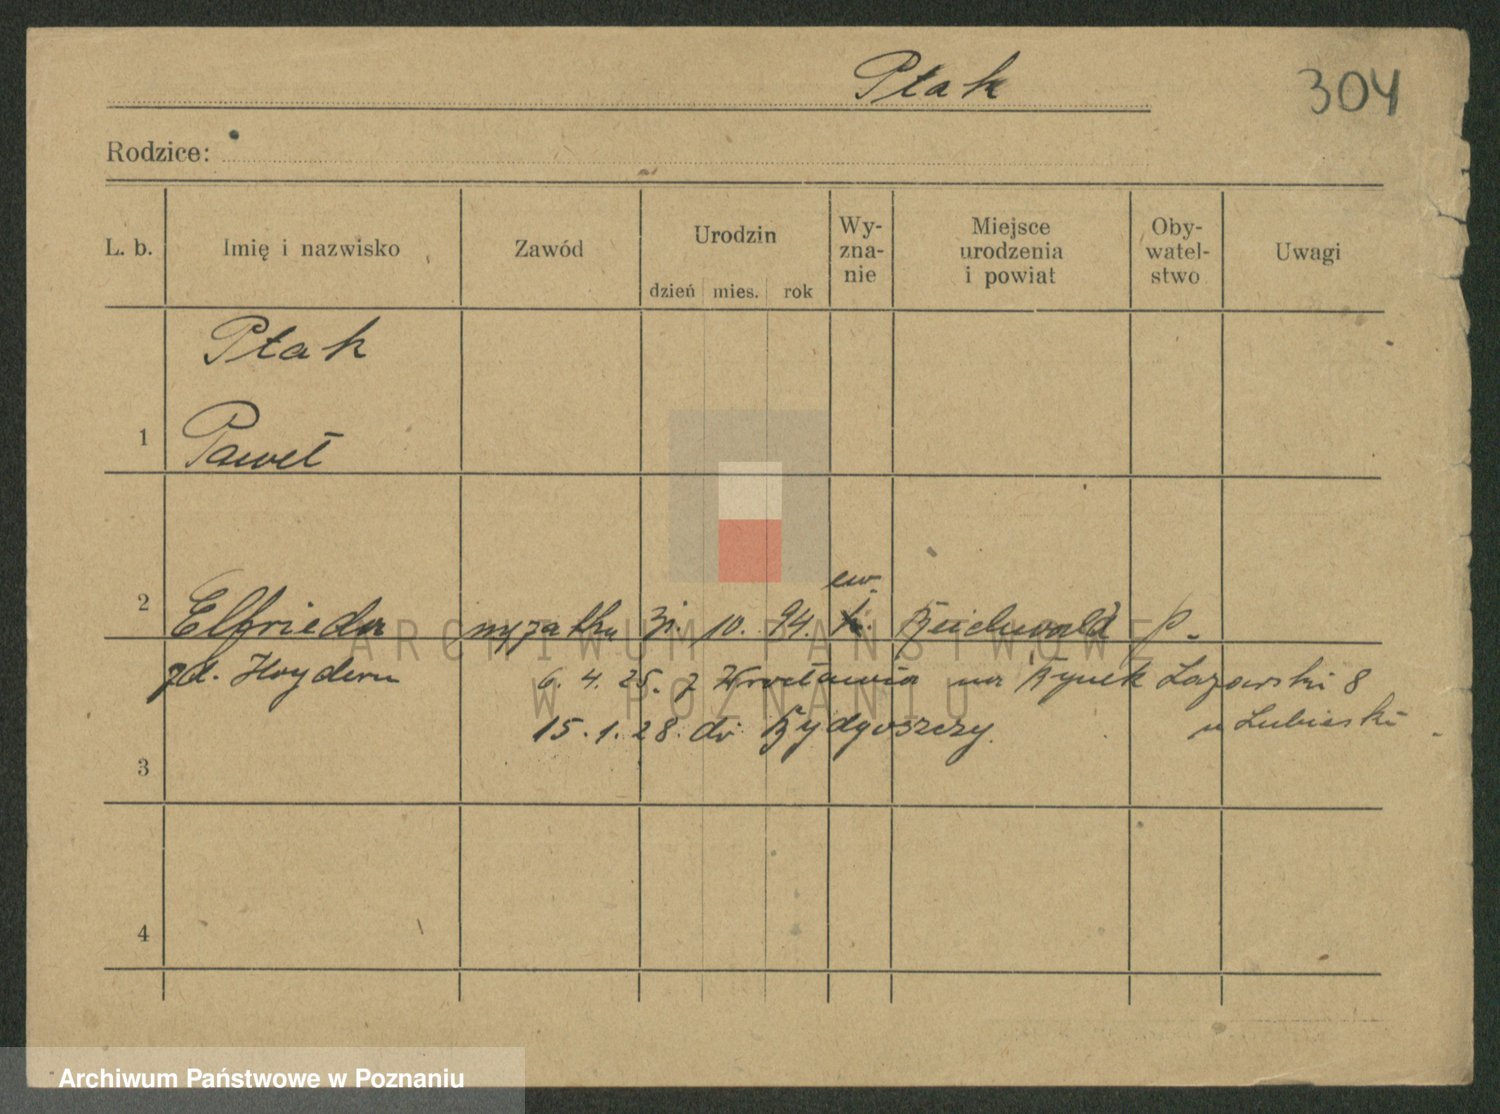 Ptak
304
Rodzice:
L. b. Imię i nazwisko Zawód Urodzin dzień mies. rok Wy-zna-nie Miejsce urodzenia i powiat Oby-watel-stwo Uwagi
Ptak
1 Paweł
ew.
2 Elfrieda 31. 10. 94. Reichwald p.
zd. 6. 4. 25. z Wrocławia na Rynek Łazarski 8
15. 1. 28. do Bydgoszczy. u Lubieski
3
4
ARCHIWUM PAŃSTWOWE
W POZNANIU
Archiwum Państwowe w Poznaniu